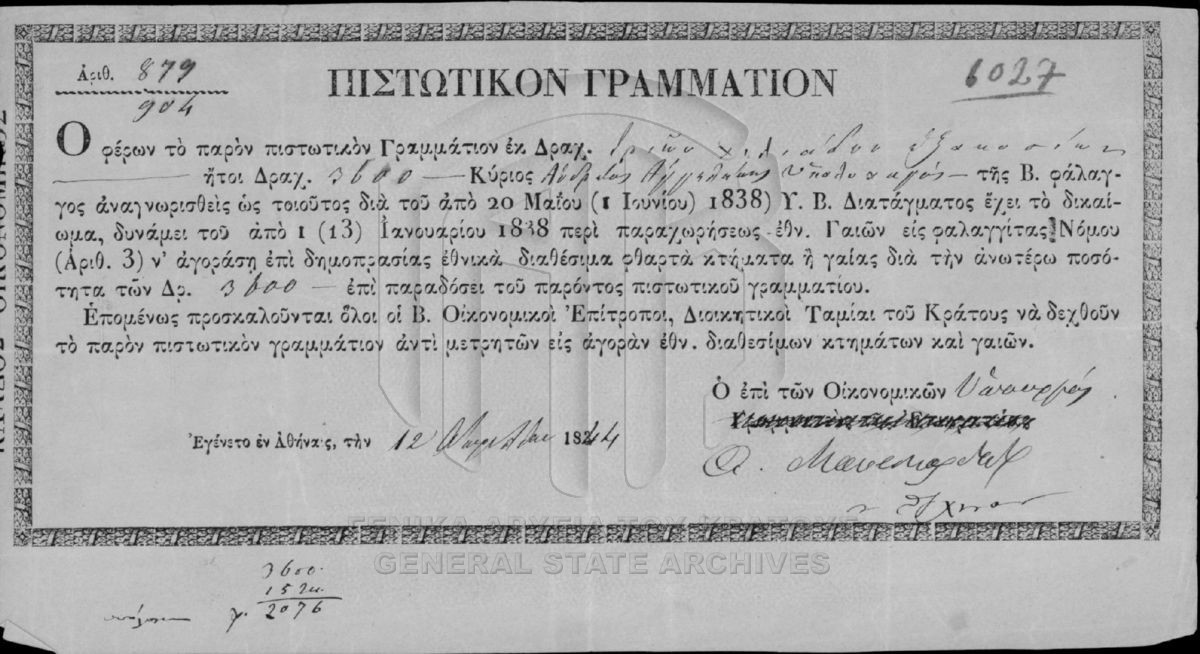 Ἀριθ. 879
904
ΠΙΣΤΩΤΙΚΟΝ ΓΡΑΜΜΑΤΙΟΝ
6027
Ὁ φέρων τὸ παρὸν πιστωτικὸν Γραμμάτιον ἐκ Δραχ. τριῶν χιλιάδων ἑξακοσίων
ἤτοι Δραχ. 3600 — Κύριος Ἀνδρέας Ὑπολοχαγός — τῆς Β. φάλαγ-
γος ἀναγνωρισθεὶς ὡς τοιοῦτος διὰ τοῦ ἀπὸ 20 Μαΐου (1 Ἰουνίου) 1838) Υ. Β. Διατάγματος ἔχει τὸ δικαί-
ωμα, δυνάμει τοῦ ἀπὸ 1 (13) Ἰανουαρίου 1838 περὶ παραχωρήσεως ἐθν. Γαιῶν εἰς φαλαγγίτας Νόμου
(Ἀριθ. 3) ν' ἀγοράσῃ ἐπὶ δημοπρασίας ἐθνικὰ διαθέσιμα φθαρτὰ κτήματα ἢ γαίας διὰ τὴν ἀνωτέρω ποσό-
τητα τῶν Δρ. 3600 — ἐπὶ παραδόσει τοῦ παρόντος πιστωτικοῦ γραμματίου.
Ἑπομένως προσκαλοῦνται ὅλοι οἱ Β. Οἰκονομικοὶ Ἐπίτροποι, Διοικητικοὶ Ταμίαι τοῦ Κράτους νὰ δεχθοῦν
τὸ παρὸν πιστωτικὸν γραμμάτιον ἀντὶ μετρητῶν εἰς ἀγορὰν ἐθν. διαθεσίμων κτημάτων καὶ γαιῶν.
Ὁ ἐπὶ τῶν Οἰκονομικῶν Ὑπουργός
Ἐγένετο ἐν Ἀθήναις, τὴν 12 Ἀπριλίου 1844
ΓΕΝΙΚΑ ΑΡΧΕΙΑ ΤΟΥ ΚΡΑΤΟΥΣ
GENERAL STATE ARCHIVES
3600
1524
2076